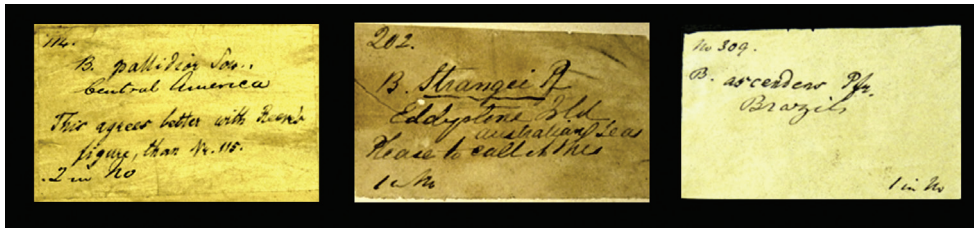 114.
B. pallidior Sow.
Central America
This agrees better with Reeve's
figure, than No. 115.
2 in No
202.
B. Strangei Pf
Eddystone Isld
Australian Seas
Please to call it this
1 in No
No 309.
B. ascendens Pfr.
Brazils
1 in No